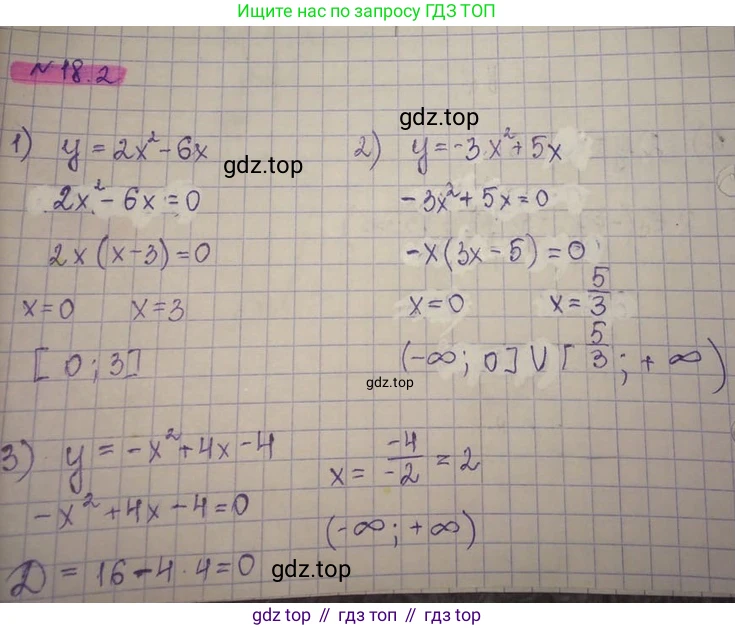 Ищите нас по запросу ГДЗ ТОП
№ 18.2
gdz.top
1) y = 2x² - 6x
gdz.top
2x² - 6x = 0
2x (x - 3) = 0
x = 0 x = 3
[0; 3]
2) y = -3x² + 5x
-3x² + 5x = 0
-x(3x - 5) = 0
x = 0 x = 5/3
(-∞; 0] U [5/3; +∞)
gdz.top
3) y = -x² + 4x - 4
-x² + 4x - 4 = 0
D = 16 - 4 · 4 = 0
gdz.top
x = -4/-2 = 2
(-∞; +∞)
gdz.top // гдз топ // gdz.top